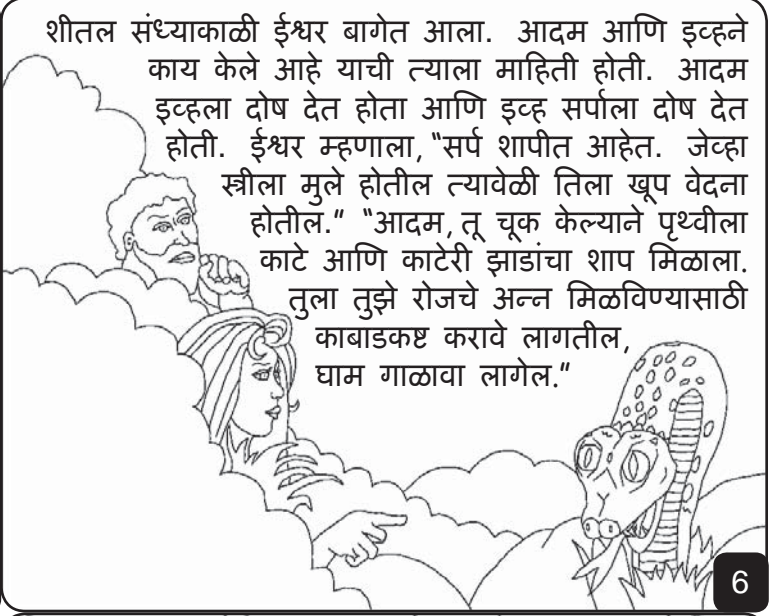 शीतल संध्याकाळी ईश्वर बागेत आला. आदम आणि इव्हने
काय केले आहे याची त्याला माहिती होती. आदम
इव्हला दोष देत होता आणि इव्ह सर्पाला दोष देत
होती. ईश्वर म्हणाला, “सर्प शापीत आहेत. जेव्हा
स्त्रीला मुले होतील त्यावेळी तिला खूप वेदना
होतील.” “आदम, तू चूक केल्याने पृथ्वीला
काटे आणि काटेरी झाडांचा शाप मिळाला.
तुला तुझे रोजचे अन्न मिळविण्यासाठी
काबाडकष्ट करावे लागतील,
घाम गाळावा लागेल.”
6